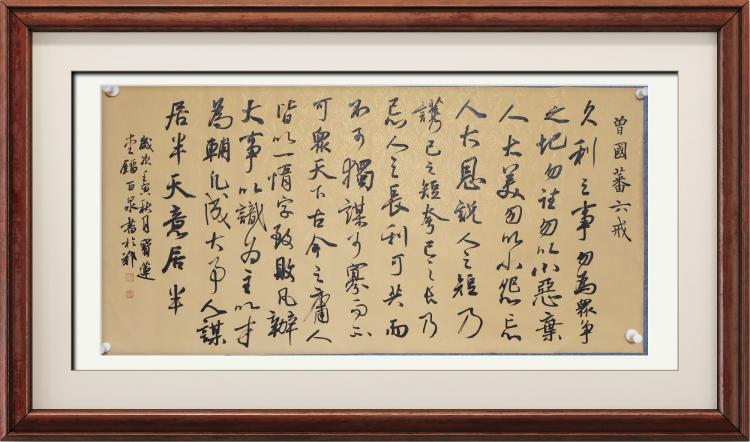 曾國蕃六戒
久利之事勿為眾爭
之地勿往勿以小惡棄
人大美勿以小怨忘
人大恩說人之短乃
護己之短夸己之长乃
忌人之長利可共而
不可獨謀可寡而不
可眾天下古今之庸人
皆以一惰字致敗凡辦
大事以識為主以才
為輔凡成大事人謀
居半天意居半
歲次壬寅秋月賀蓮
堂百泉書於鄭